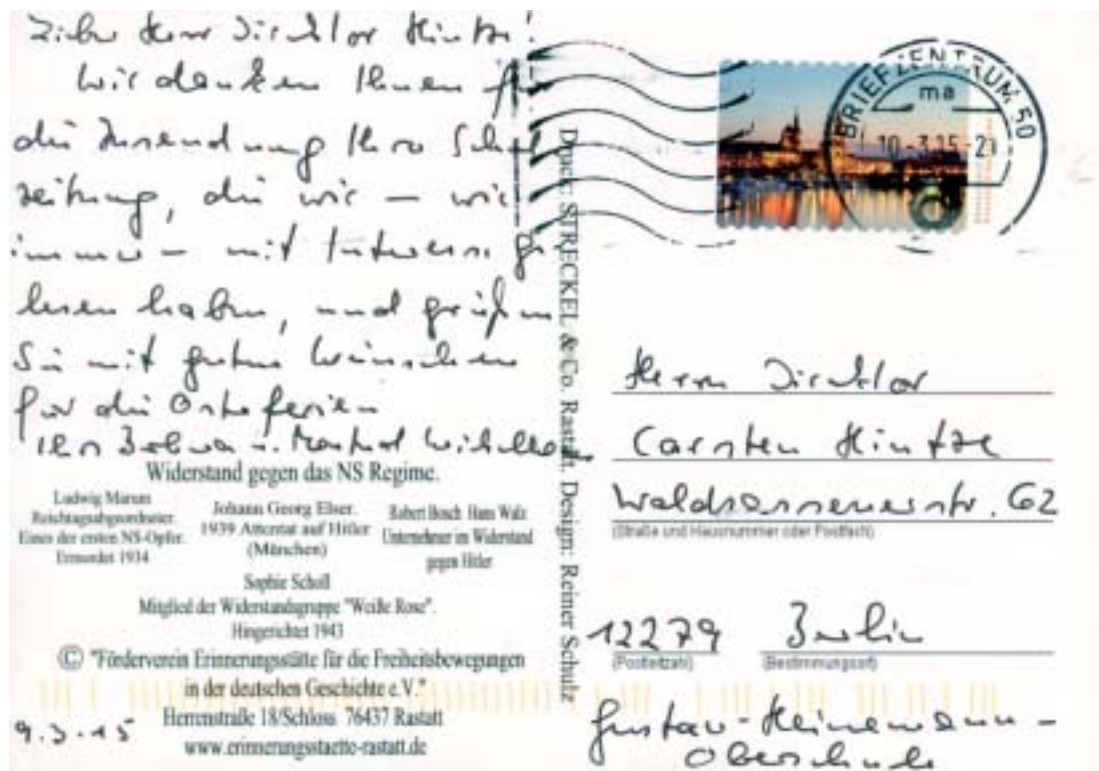 Lieber Herr Direktor Hintze!
Wir danken Ihnen für
die Zusendung Ihrer Schul
zeitung, die wir – wie
immer – mit Interesse ge
lesen haben, und grüßen
Sie mit guten Wünschen
für die Osterferien
Ihre u.
Widerstand gegen das NS Regime.
Ludwig Marum
Reichtagsabgeordneter.
Eines der ersten NS-Opfer.
Ermordet 1934
Johann Georg Elser.
1939 Attentat auf Hitler
(München)
Robert Bosch Hans Walz
Unternehmer im Widerstand
gegen Hitler
Sophie Scholl
Mitglied der Widerstandsgruppe "Weiße Rose".
Hingerichtet 1943
© "Förderverein Erinnerungsstätte für die Freiheitsbewegungen
in der deutschen Geschichte e.V."
Herrenstraße 18/Schloss 76437 Rastatt
www.erinnerungsstaette-rastatt.de
9.3.15
Druck: STRECKEL & Co. Rastatt, Design: Reiner Schulz
BRIEFZENTRUM 50
ma
10.-3.15-21
Herrn Direktor
Carsten Hintze
Waldsassenerstr. 62
(Straße und Hausnummer oder Postfach)
12279 Berlin
(Postleitzahl) (Bestimmungsort)
Gustav-Heinemann-
Oberschule